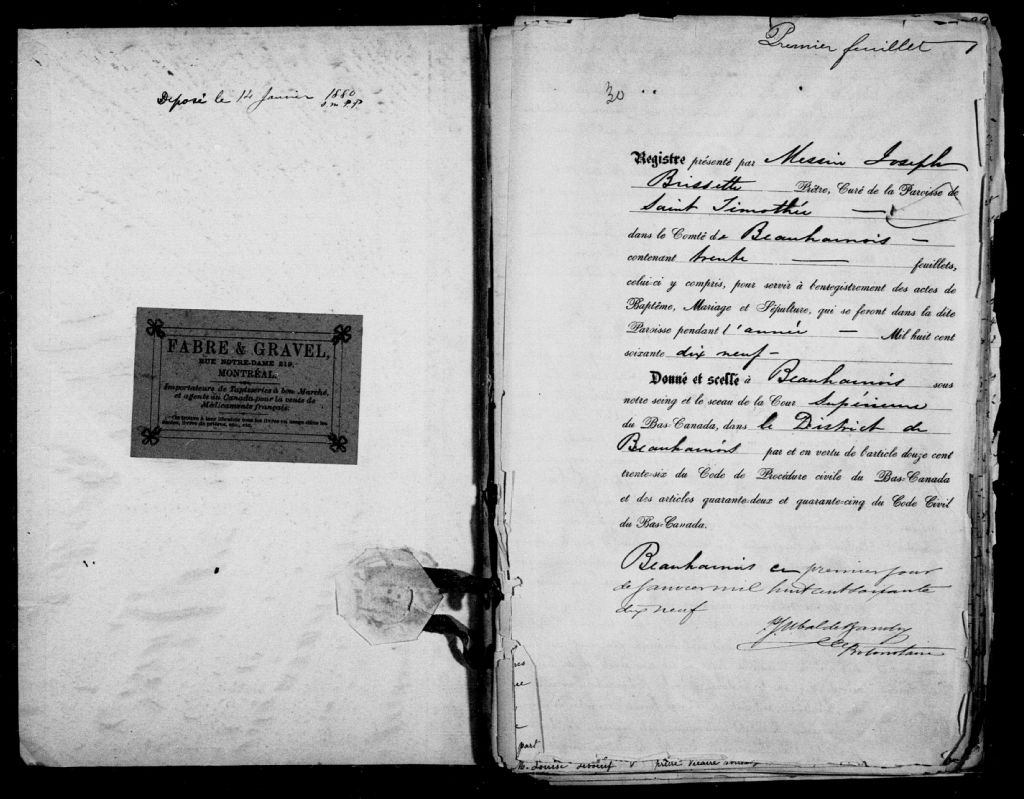 Deposé le 14 Janvier 1880
FABRE & GRAVEL,
RUE NOTRE-DAME 219,
MONTRÉAL.
Importateurs de Tapisseries à bon Marché,
et agents au Canada pour la vente de
Médicaments français.
On trouve à leur librairie tous les livres en usage dans les
écoles, livres de prières, etc., etc.
Premier feuillet
30
Registre présenté par Messire Joseph
Brissette Prêtre, Curé de la Paroisse de
Saint Timothée
dans le Comté de Beauharnois
contenant trente feuillets,
celui-ci y compris, pour servir à l'enregistrement des actes de
Baptême, Mariage et Sépulture, qui se feront dans la dite
Paroisse pendant l'année Mil huit cent
soixante dix neuf
Donné et scellé à Beauharnois sous
notre seing et le sceau de la Cour Supérieure
du Bas-Canada, dans le District de
Beauharnois par et en vertu de l'article douze cent
trente-six du Code de Procédure civile du Bas-Canada
et des articles quarante-deux et quarante-cinq du Code Civil
du Bas-Canada.
Beauharnois ce premier jour
de Janvier mil huit cent soixante
dix neuf
Protonotaire
part